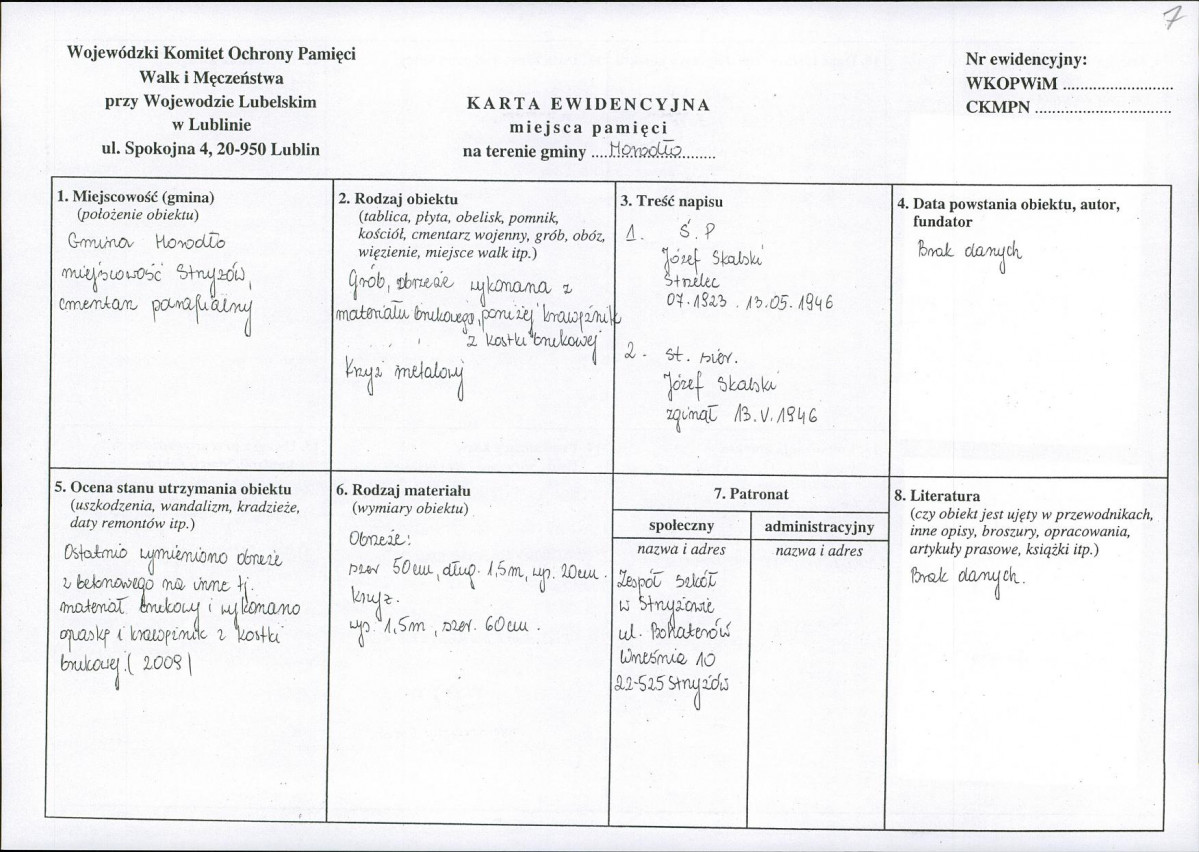 7
Wojewódzki Komitet Ochrony Pamięci
Walk i Męczeństwa
przy Wojewodzie Lubelskim
w Lublinie
ul. Spokojna 4, 20-950 Lublin
KARTA EWIDENCYJNA
miejsca pamięci
na terenie gminy ....Horodło..............
Nr ewidencyjny:
WKOPWiM ..........................
CKMPN ................................
1. Miejscowość (gmina)
(położenie obiektu)
Gmina Horodło
miejscowość Stryżów,
cmentarz parafialny
2. Rodzaj obiektu
(tablica, płyta, obelisk, pomnik,
kościół, cmentarz wojenny, grób, obóz,
więzienie, miejsce walk itp.)
Grób, obrzeże wykonana z
materiału brukowego, poniżej krawężnik
z kostki brukowej
Krzyż metalowy
3. Treść napisu
1. Ś.P
Józef Skalski
Strzelec
07.1923 . 13.05.1946
2. St. sier.
Józef Skalski
zginął 13.V.1946
4. Data powstania obiektu, autor,
fundator
Brak danych
5. Ocena stanu utrzymania obiektu
(uszkodzenia, wandalizm, kradzieże,
daty remontów itp.)
Ostatnio wymieniono obrzeże
z betonowego na inne tj.
materiał brukowy i wykonano
opaskę i krawężnik z kostki
brukowej. (2009)
6. Rodzaj materiału
(wymiary obiektu)
Obrzeże:
szer 50cm, dług. 1,5m, wys. 20cm.
Krzyż.
wys. 1,5m, szer. 60cm.
7. Patronat
społeczny
nazwa i adres
Zespół Szkół
w Stryżowie
ul. Bohaterów
Września 10
22-525 Stryżów
administracyjny
nazwa i adres
8. Literatura
(czy obiekt jest ujęty w przewodnikach,
inne opisy, broszury, opracowania,
artykuły prasowe, książki itp.)
Brak danych.